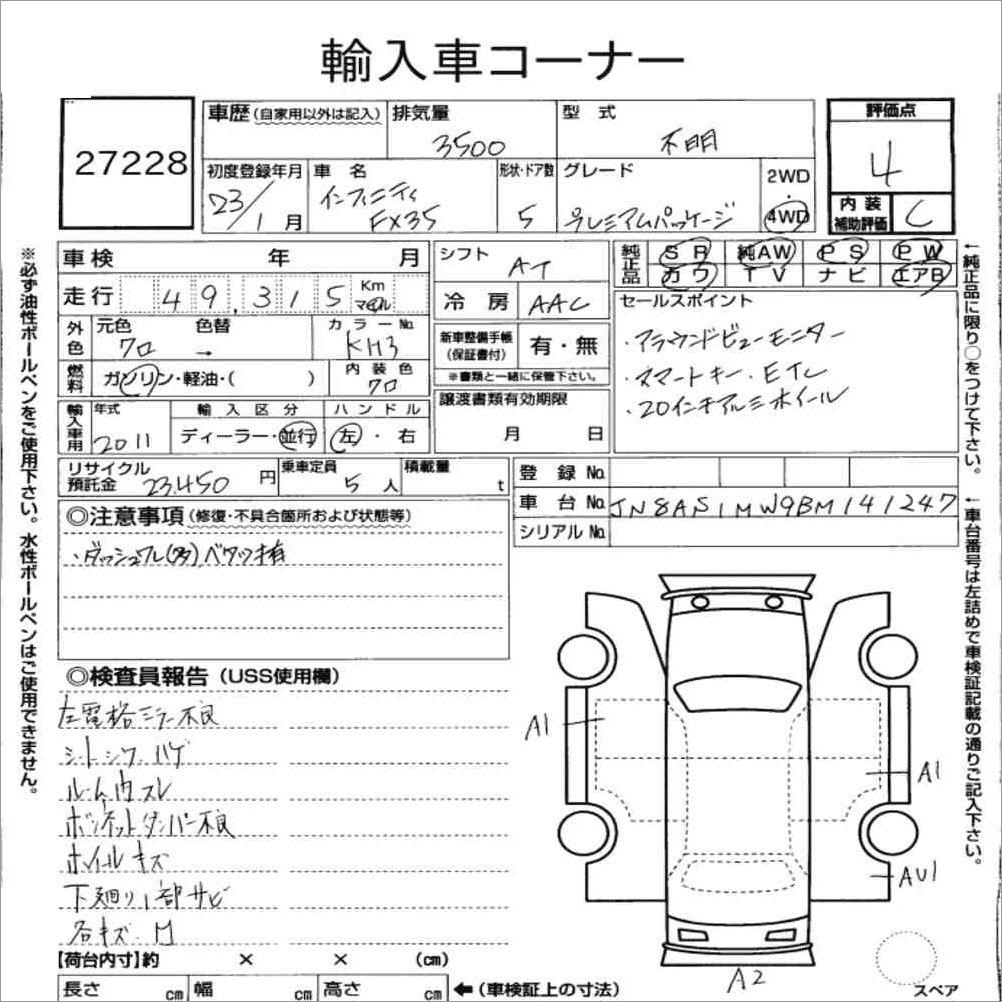 輸入車コーナー
27228
車歴(自家用以外は記入)
排気量
3500
型式
不明
評価点
4
初度登録年月
23/1月
車名
インフィニティ
FX35
形状・ドア数
5
グレード
プレミアムパッケージ
2WD
・
4WD
内装
補助評価
C
車検 年 月
シフト
AT
純正品
SR 純AW PS PW
カワ TV ナビ エアB
走行 49,315 Km マイル
冷房 AAC
セールスポイント
・アラウンドビューモニター
・スマートキー・ETC
・20インチアルミホイール
外色
元色 色替
クロ →
カラーNo.
KH3
新車整備手帳
(保証書付)
有・無
※書類と一緒に保管下さい。
燃料
ガソリン・軽油・( )
内装色
クロ
譲渡書類有効期限
月 日
輸入車用
年式
2011
輸入区分
ディーラー・並行
ハンドル
左・右
リサイクル
預託金 23,450円
乗車定員
5人
積載量
t
登録No.
車台No. JN8AS1MW9BM141247
シリアルNo.
◎注意事項(修復・不具合箇所および状態等)
・ダッシュ
ベタツキ有
◎検査員報告(USS使用欄)
左電格ミラー不良
シートシワ、ハゲ
ルーム内スレ
ボンネットダンパー不良
ホイールキズ
下廻り1部サビ
各キズ、凹
A1
A1
AU1
A2
スペア
【荷台内寸】約 × × (cm)
長さ cm 幅 cm 高さ cm ←(車検証上の寸法)
※必ず油性ボールペンをご使用下さい。水性ボールペンはご使用できません。
←純正品に限り○をつけて下さい。
←車台番号は左詰めで車検証記載の通りご記入下さい。